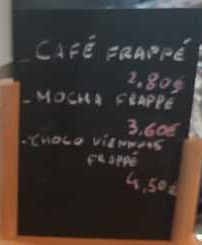 - CAFÉ FRAPPÉ
2,80€
- MOCHA FRAPPÉ
3,60€
- CHOCO VIENNOIS
FRAPPÉ
4,50€